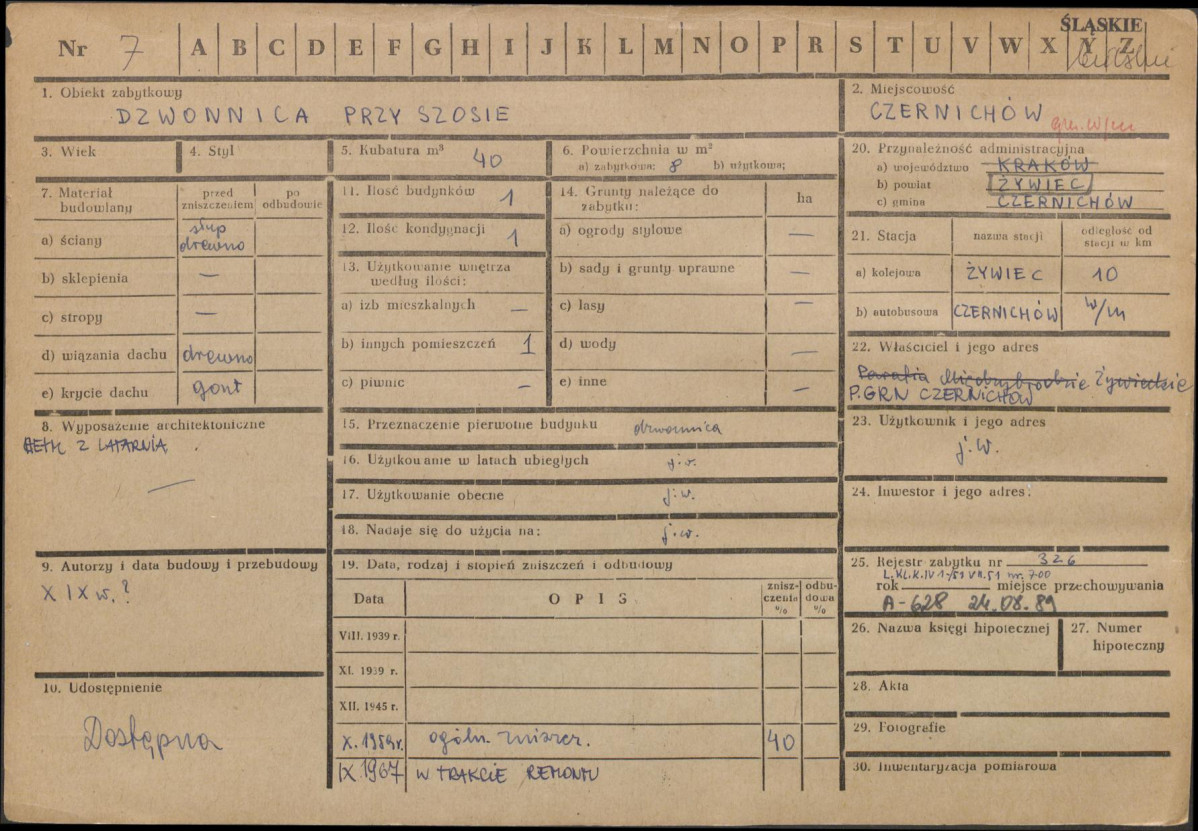 Nr 7 A B C D E F G H I J K L M N O P R S T U V W X Y Z
ŚLĄSKIE
1. Obiekt zabytkowy
DZWONNICA PRZY SZOSIE
2. Miejscowość
CZERNICHÓW
3. Wiek
4. Styl
5. Kubatura m³ 40
6. Powierzchnia w m²
a) zabytkowa: 8 b) użytkowa:
20. Przynależność administracyjna
a) województwo KRAKÓW
b) powiat ŻYWIEC
c) gmina CZERNICHÓW
7. Materiał budowlany
przed zniszczeniem
po odbudowie
a) ściany słup drewno
b) sklepienia —
c) stropy —
d) wiązania dachu drewno
e) krycie dachu gont
11. Ilość budynków 1
12. Ilość kondygnacji 1
13. Użytkowanie wnętrza według ilości:
a) izb mieszkalnych —
b) innych pomieszczeń 1
c) piwnic —
14. Grunty należące do zabytku: ha
a) ogrody stylowe —
b) sady i grunty uprawne —
c) lasy —
d) wody —
e) inne —
21. Stacja
nazwa stacji
odległość od stacji w km
a) kolejowa ŻYWIEC 10
b) autobusowa CZERNICHÓW w/m
22. Właściciel i jego adres
Parafia Międzybrodzie Żywieckie
P.GRN CZERNICHÓW
8. Wyposażenie architektoniczne
HEŁM Z LATARNIĄ
—
15. Przeznaczenie pierwotne budynku dzwonnica
16. Użytkowanie w latach ubiegłych j.w.
17. Użytkowanie obecne j.w.
18. Nadaje się do użycia na: j.w.
23. Użytkownik i jego adres
j.w.
24. Inwestor i jego adres:
9. Autorzy i data budowy i przebudowy
XIX w.?
19. Data, rodzaj i stopień zniszczeń i odbudowy
Data OPIS zniszczenia % odbudowa %
VIII. 1939 r.
XI. 1939 r.
XII. 1945 r.
X. 1959 r. ogóln. zniszcz. 40
IX 1967 W TRAKCIE REMONTU
25. Rejestr zabytku nr 326
L.KL.K.IV 1-/51 VII.51 nr. 700
rok miejsce przechowywania
A-628 24.08.89
26. Nazwa księgi hipotecznej
27. Numer hipoteczny
10. Udostępnienie
Dostępna
28. Akta
29. Fotografie
30. Inwentaryzacja pomiarowa